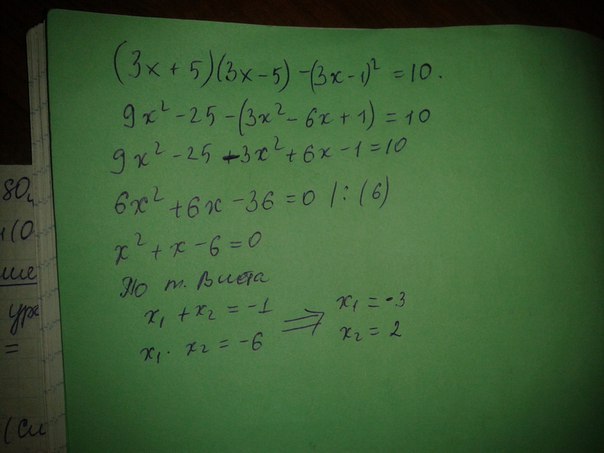 (3x + 5)(3x - 5) - (3x - 1)² = 10.
9x² - 25 - (3x² - 6x + 1) = 10
9x² - 25 - 3x² + 6x - 1 = 10
6x² + 6x - 36 = 0 /: (6)
x² + x - 6 = 0
По т. Виета
x₁ + x₂ = -1
x₁ · x₂ = -6
⇒
x₁ = -3
x₂ = 2
SO₄
(О
ше
ура
=
(Сл